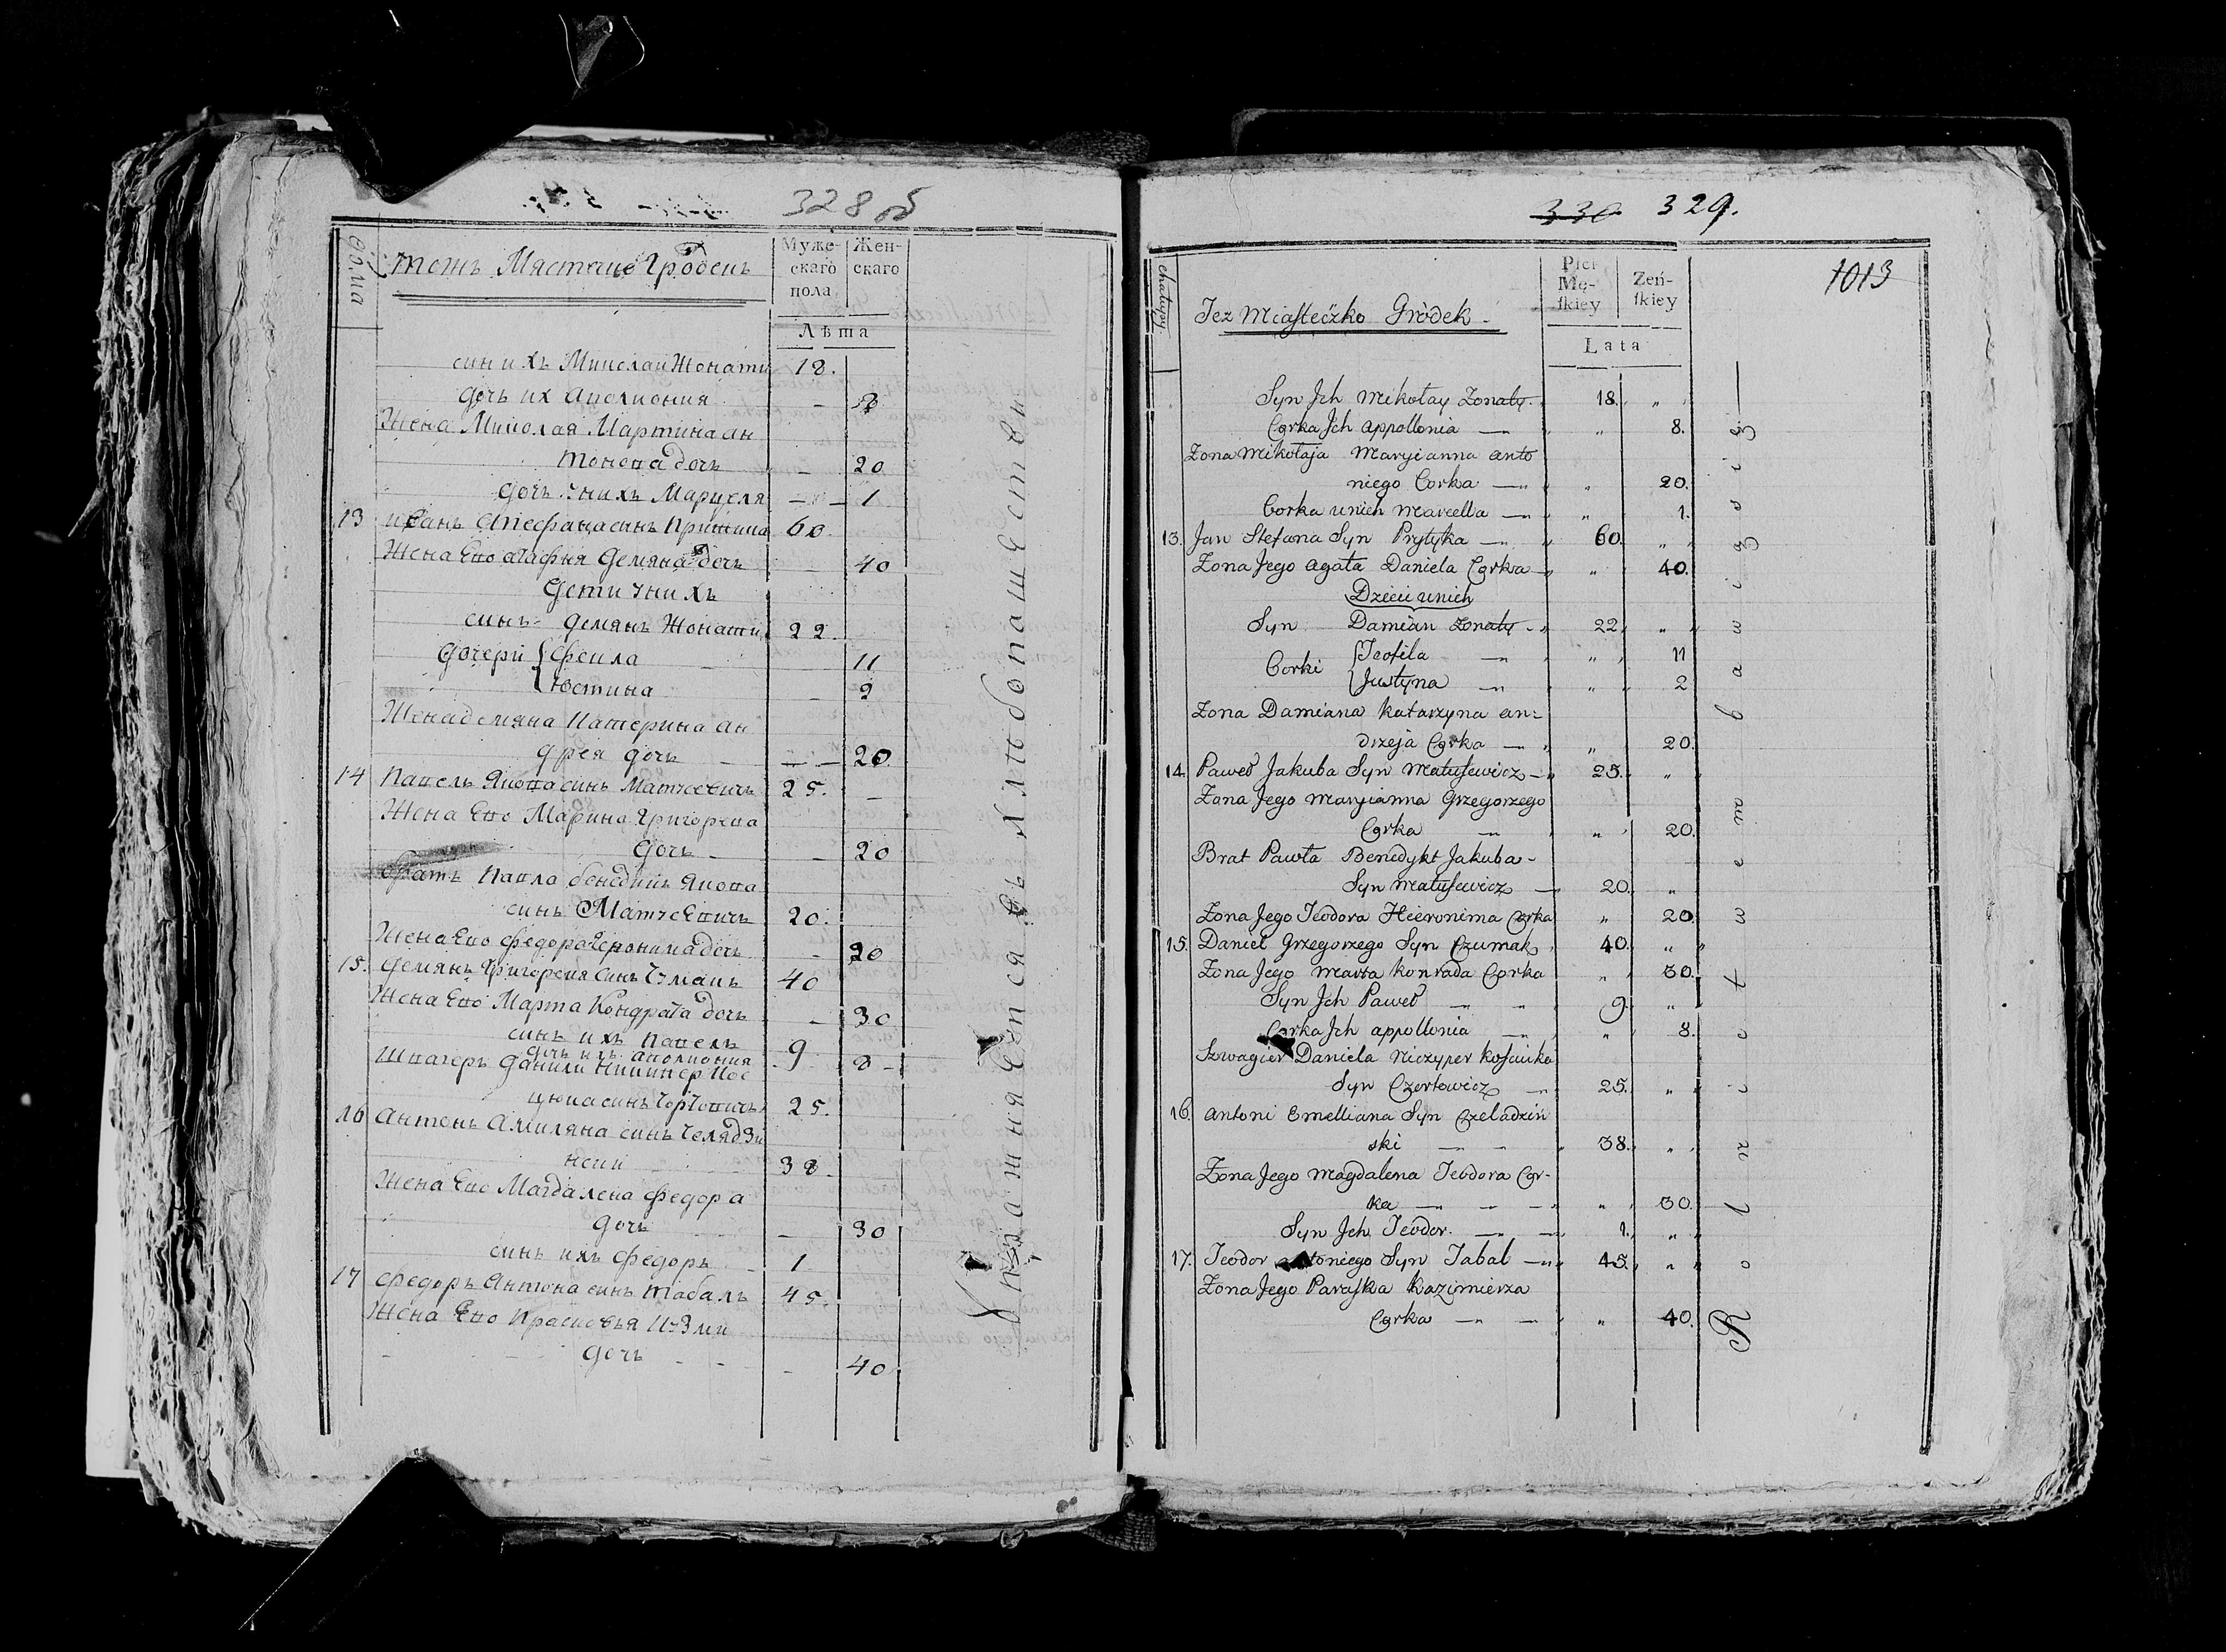 328 об
Муже-
скаго
пола
Жен-
скаго
Лѣта
тожъ Мястечко Гродекъ
синъ ихъ Миколай Жонати 18.
дочь их Аполиония — 8
Жена Миколая Мартина ан
тонова дочь — 20
дочь уних Марцеля — 1
13 Иванъ Стефана синъ Притика 60.
Жена Его агафия демяна дочь — 40
Дети уних
синъ Демянъ Жонати 22.
Дочери { Фекла — 11
{ Юстина — 2
Жена демяна Катерина ан
дрея дочь — 20
14 Павелъ Якова синъ Матусевичъ 25. —
Жена Его Марина Григорева
дочь — 20
братъ Павла бенедикъ Якова
синъ Матусевичъ 20.
Жена Его федора Геронима дочь — 20
15. Демянъ Григорея синъ Чумакъ 40
Жена Его Марта Кондрата дочь — 30
синъ ихъ Павелъ 9
дочь ихъ аполиония 8
Швагеръ Данили Ничиперъ Кос
цюка синъ Чортовичъ 25.
16 Антонъ Амиляна синъ Челядзи
нски 38
Жена Его Магдалена федора
дочь — 30
синъ ихъ федоръ 1
17 федоръ Антона синъ Табалъ 45.
Жена Его Прасковья
дочь — 40
упражняется в хлебопашестве
330 329.
1013
chałupy
Płci
Mę-
ſkiey
Żeń-
ſkiey
Lata
Tez Miaſteczko Gródek
Syn Jch Mikołay Zonaty 18. „
Corka Jch Appollonia — „ 8.
Zona Mikołaja Maryianna Anto
niego Corka — „ 20.
Corka unich Marcella — „ 1.
13. Jan Stefana Syn Prytyka — 60. „
Zona Jego Agata Daniela Corka — „ 40.
Dzieci unich
Syn Damian Zonaty 22 „
Corki { Teofila — „ 11
{ Justyna — „ 2
Zona Damiana Katarzyna An-
drzeja Corka — „ 20.
14. Paweł Jakuba Syn Matuſewicz — 25. „
Zona Jego Maryianna Grzegorzego
Corka — „ 20.
Brat Pawła Benedykt Jakuba-
Syn Matuſewicz — 20. „
Zona Jego Teodora Hieronima Corka „ 20.
15. Daniel Grzegorzego Syn Czumak 40. „
Zona Jego Marta Konrada Corka „ 30.
Syn Jch Paweł — 9. „
Corka Jch Appollonia — „ 8.
Szwagier Daniela Niczyper Kosciuka
Syn Czortowicz — 25. „
16. Antoni Emelliana Syn Czeladziń
ski — 38. „
Zona Jego Magdalena Teodora Cor-
ka — „ 30.
Syn Jch Teodor. — 1. „
17. Teodor Antoniego Syn Tabal — 45. „
Zona Jego Paraſka Kazimierza
Corka — „ 40.
Rolnictwem bawią się —